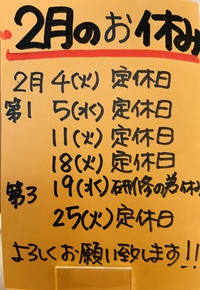 2月のお休み
2月 4(火) 定休日
第1 5(水) 定休日
11(火) 定休日
18(火) 定休日
第3 19(水) 研修の為休み
25(火) 定休日
よろしくお願い致します!!